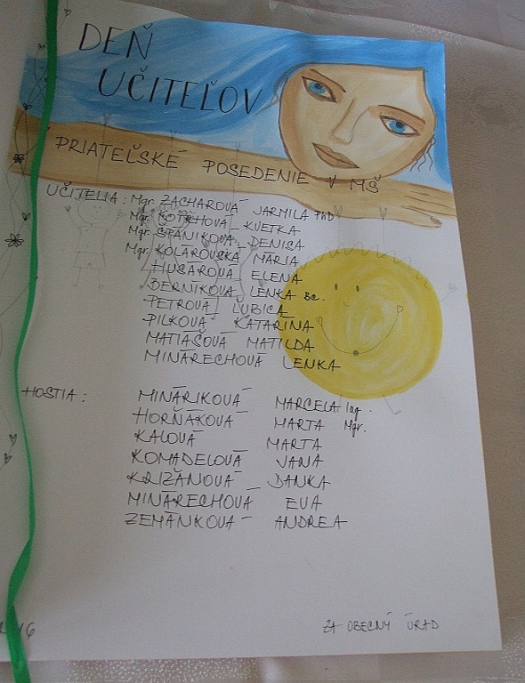 DEŇ
UČITEĽOV
PRIATEĽSKÉ POSEDENIE V MŠ
UČITELIA: Mgr. ZACHAROVÁ JARMILA PhD
Mgr. KOTRHOVÁ KVETKA
Mgr. ŠPANIKOVÁ DENISA
Mgr. KOLAROVSKÁ MÁRIA
HUSÁROVÁ ELENA
BERNÍKOVÁ LENKA Bc.
PETROVÁ ĽUBICA
PILKOVÁ KATARÍNA
MATIAŠOVÁ MATILDA
MINÁRECHOVÁ LENKA
HOSTIA:
MINÁRIKOVÁ MARCELA Ing.
HORŇÁKOVÁ MARTA Mgr.
KALOVÁ MARTA
KOMADELOVÁ JANA
KRIŽANOVÁ DANKA
MINÁRECHOVÁ EVA
ZEMÁNKOVÁ ANDREA
ZA OBECNÝ ÚRAD